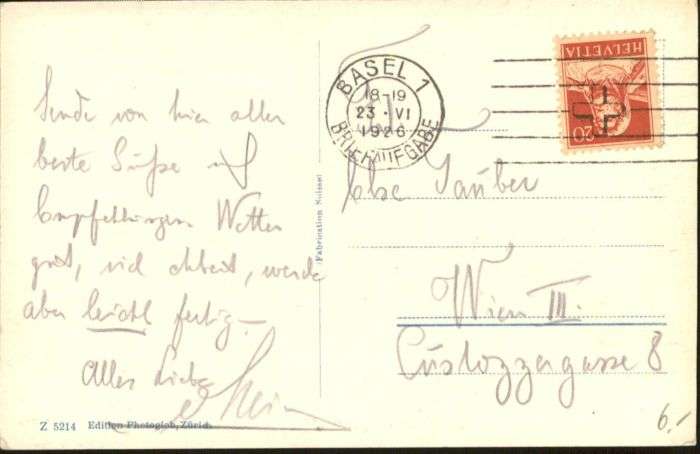 Sende von hier allen
beste Grüße und
Empfehlungen Wetter
gut, viel Arbeit, werde
aber leicht fertig –
Alles Liebe
Z 5214 Edition Photoglob, Zürich
Fabrication Suisse
BASEL 1
18-19
23·VI
1926
BRIEFAUFGABE
HELVETIA
20
Else Tauber
Wien III.
Custozzagasse 8
6.-